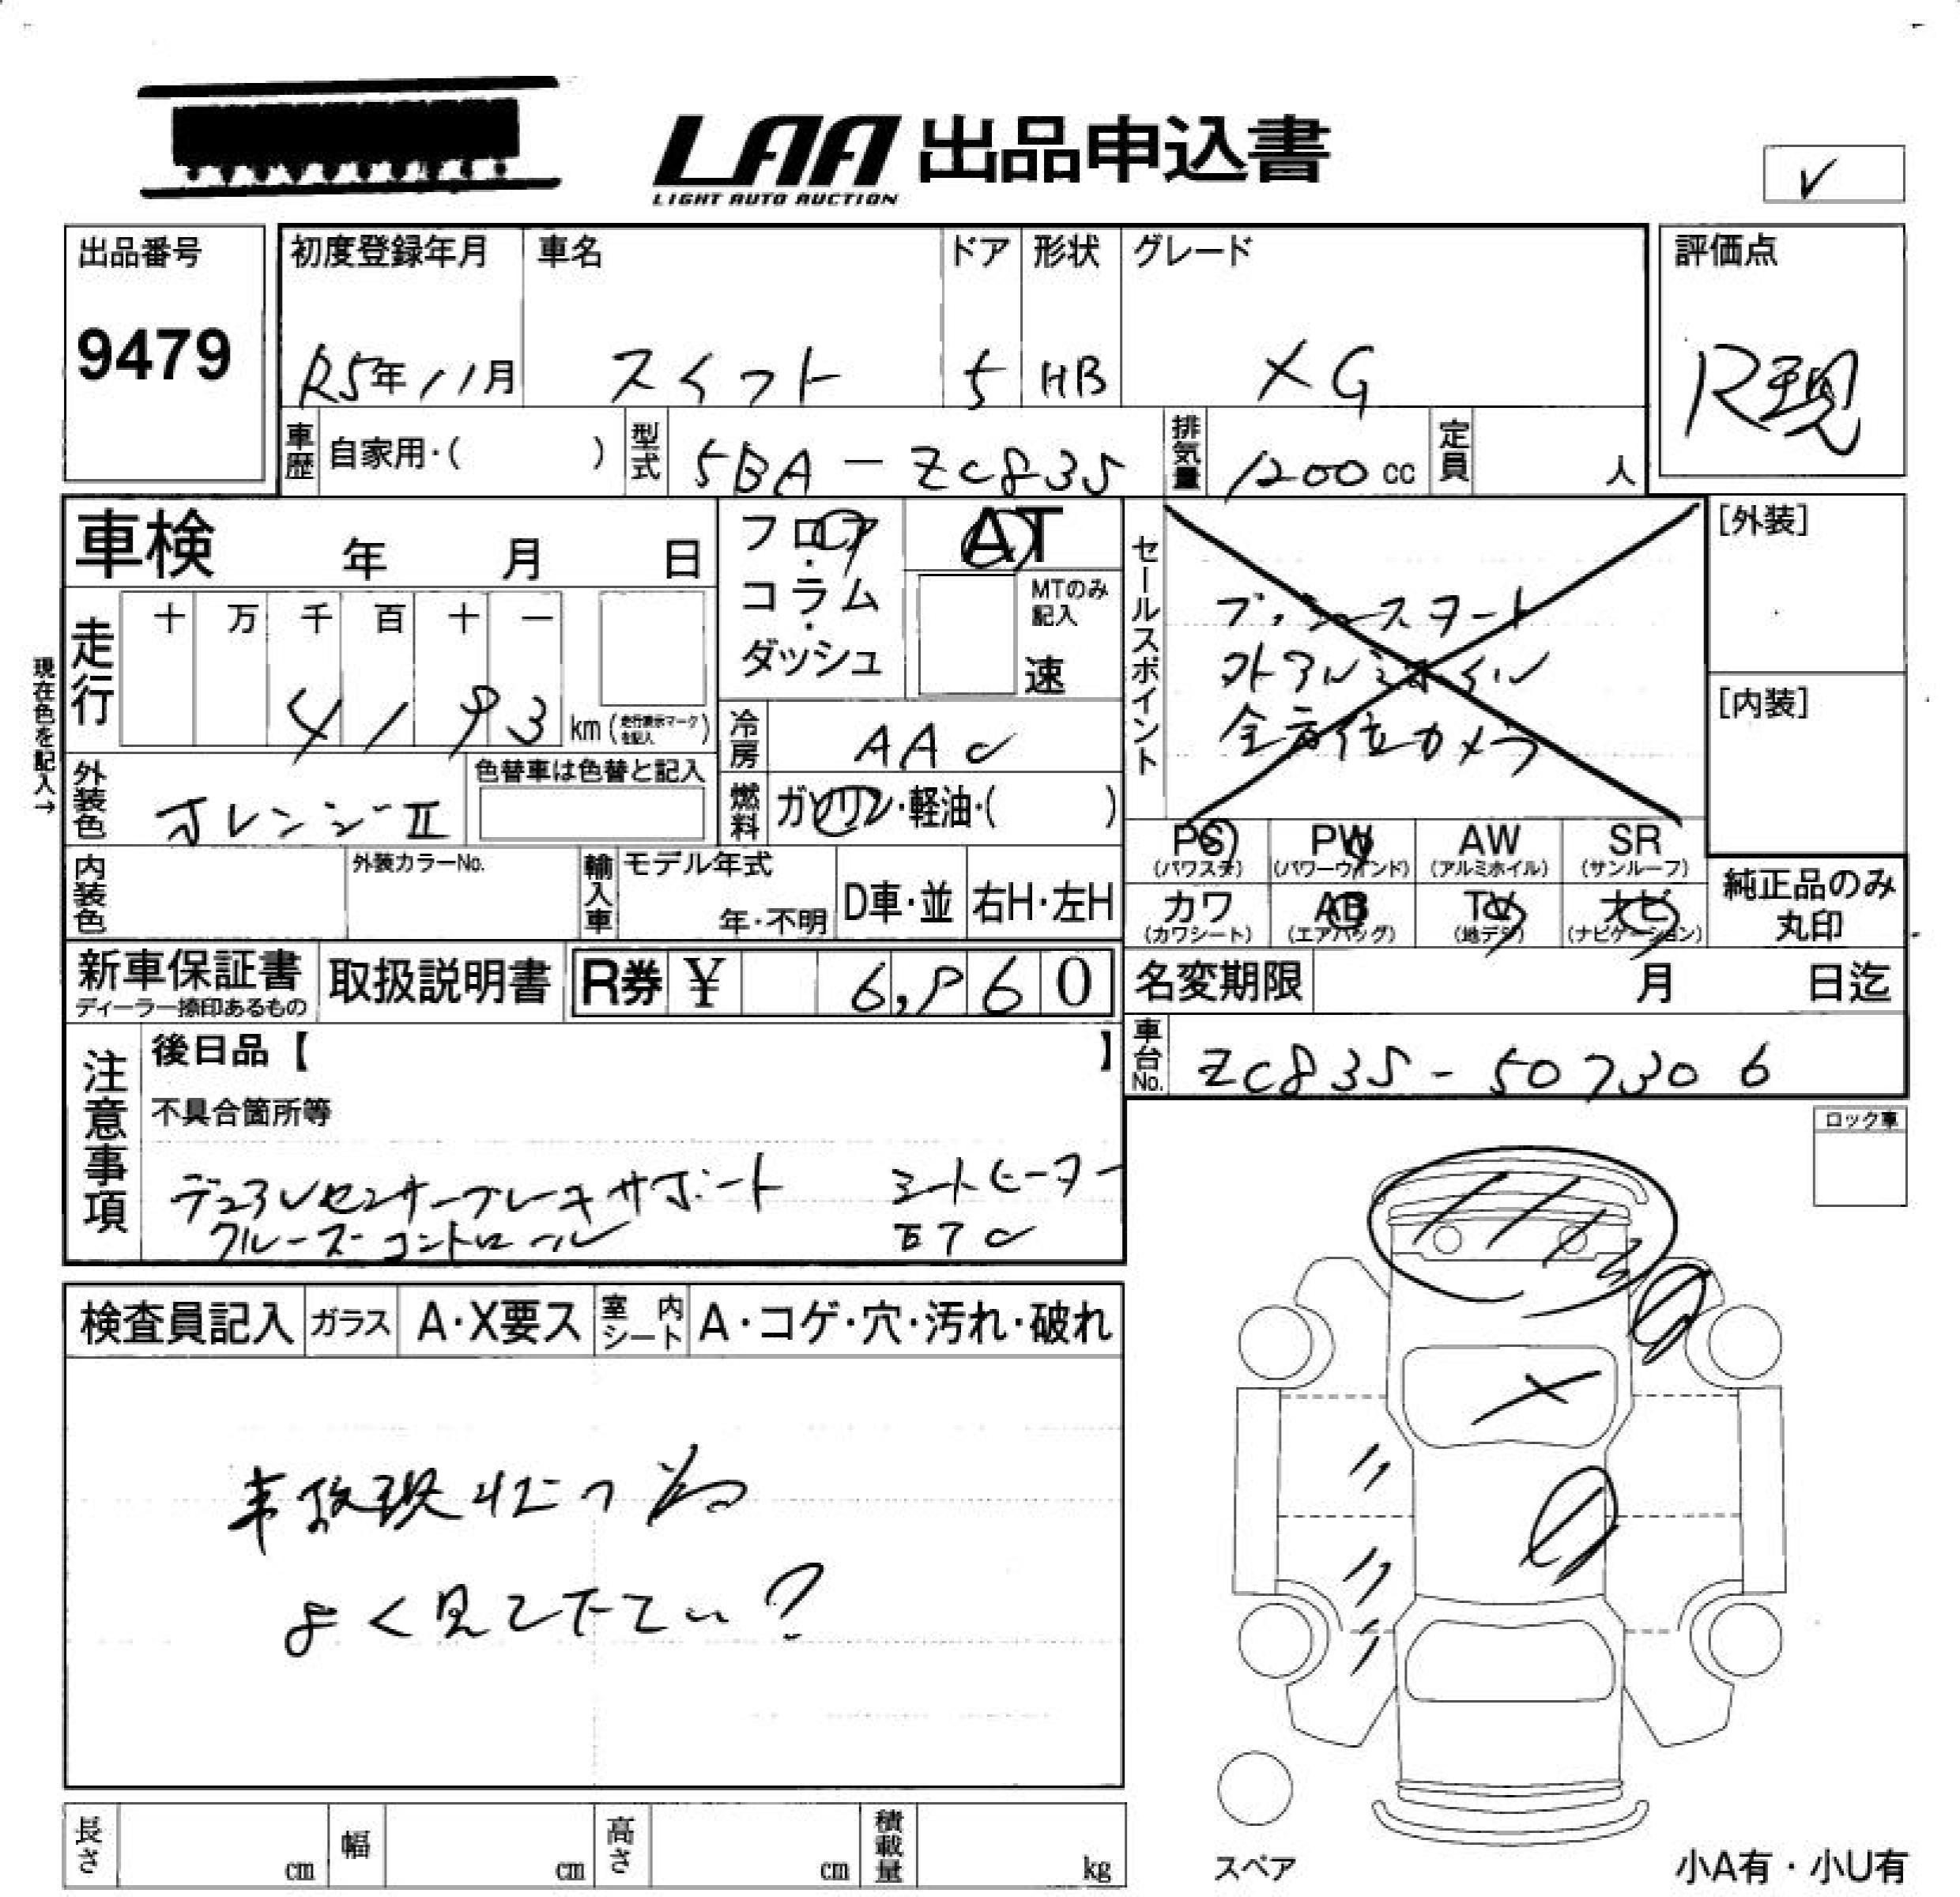 LAA 出品申込書
LIGHT AUTO AUCTION
✓
出品番号
9479
初度登録年月
R5年11月
車名
スイフト
ドア
5
形状
HB
グレード
XG
評価点
R現
車歴
自家用・( )
型式
5BA-ZC83S
排気量
1200cc
定員
人
車検 年 月 日
現在色を記入→
走行
十 万 千 百 十 一
4193 km (走行表示マークを記入)
フロア・コラム・ダッシュ
AT
MTのみ記入
速
冷房
AAC
燃料
ガソリン・軽油・( )
外装色
オレンジⅡ
色替車は色替と記入
内装色
外装カラーNo.
輸入車
モデル年式
年・不明
D車・並
右H・左H
セールスポイント
プッシュスタート
外アルミホイル
全方位カメラ
[外装]
[内装]
PS
(パワステ)
PW
(パワーウインド)
AW
(アルミホイル)
SR
(サンルーフ)
カワ
(カワシート)
AB
(エアバッグ)
TV
(地デジ)
ナビ
(ナビゲーション)
純正品のみ
丸印
新車保証書
ディーラー捺印あるもの
取扱説明書
R券 ¥ 6,960
名変期限 月 日迄
車台No.
ZC83S-507306
注意事項
後日品【 】
不具合箇所等
デュアルセンサーブレーキサポート シートヒーター
クルーズコントロール ETC
ロック車
検査員記入
ガラス
A・X要ス
室内シート
A・コゲ・穴・汚れ・破れ
事故現状の為
よく見て下さい?
長さ cm
幅 cm
高さ cm
積載量 kg
スペア
小A有・小U有